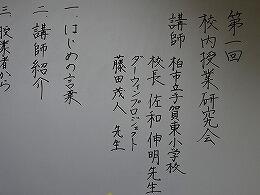 第一回
校内授業研究会
講師 柏市立手賀東小学校
校長 佐和伸明先生
ダーウィンプロジェクト
藤田茂人 先生
一、はじめの言葉
二、講師紹介
三、授業者から